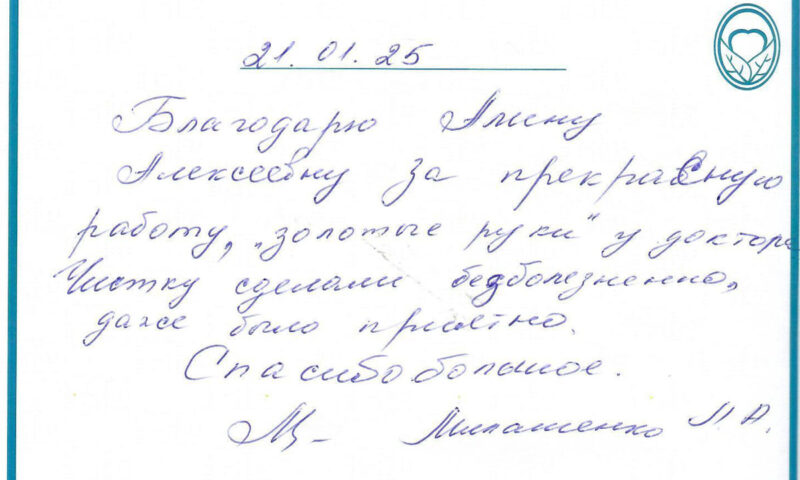 21.01.25
Благодарю Алину
Алексеевну за прекрасную
работу, "золотые руки" у доктора
Чистку сделали безболезненно,
даже было приятно.
Спасибо большое.
М- Милашенко Л.А.